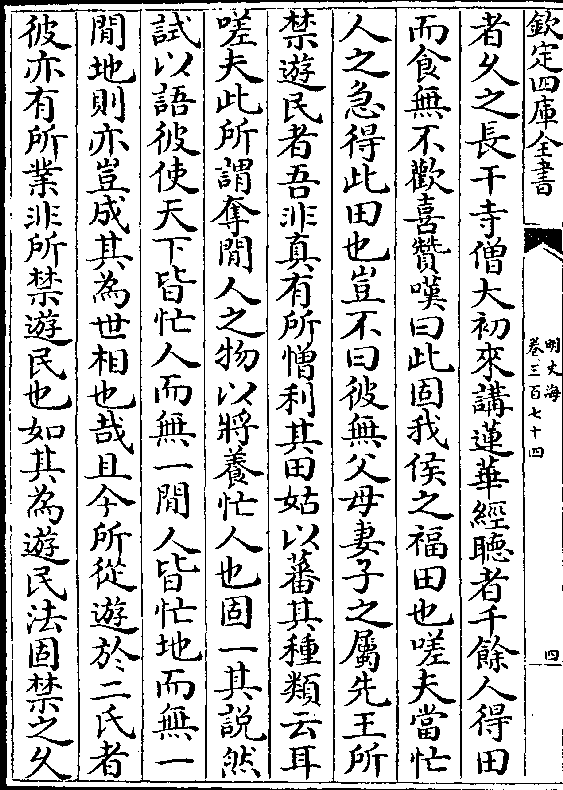 欽定四庫全書
明文海
卷三百七十四
四
者久之長干寺僧大初來講蓮華經聽者千餘人得田
而食無不歡喜贊嘆曰此固我侯之福田也嗟夫當忙
人之急得此田也豈不曰彼無父母妻子之屬先王所
禁遊民者吾非真有所憎利其田姑以蕃其種類云耳
嗟夫此所謂奪閒人之物以將養忙人也固一其說然
試以語彼使天下皆忙人而無一閒人皆忙地而無一
閒地則亦豈成其為世相也哉且今所從遊於二氏者
彼亦有所業非所禁遊民也如其為遊民法固禁之久